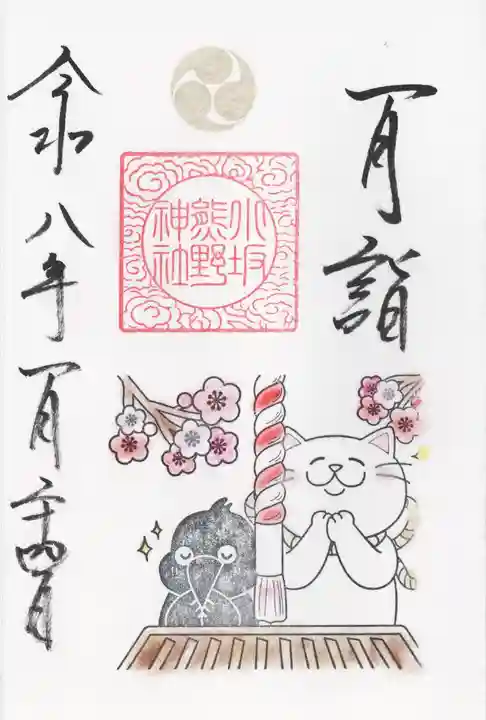 一月詣
小坂
熊野
神社
令和八年一月二十四日